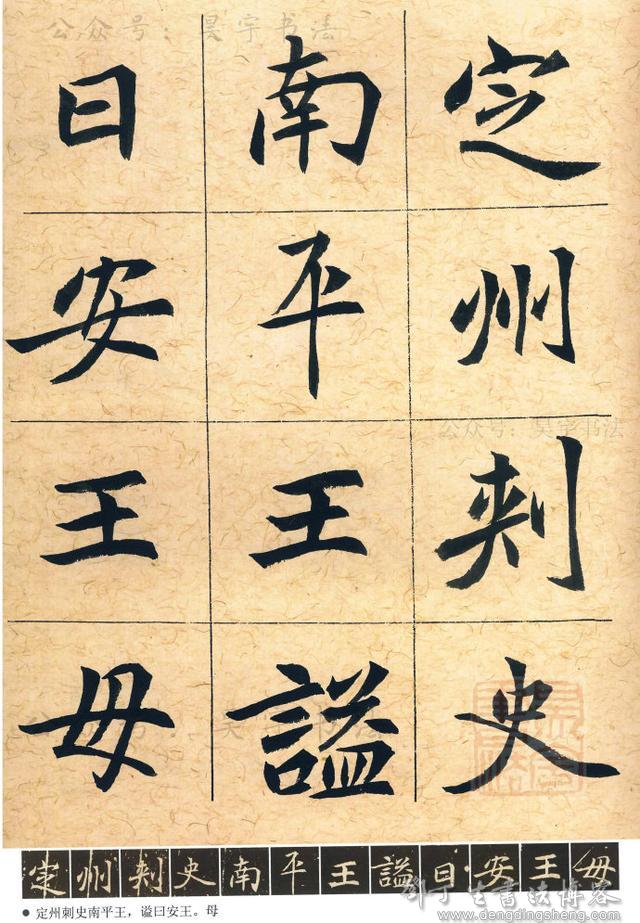 公众号：昊宇书法
定州刺史
南平王謚
曰安王母
公众号：昊宇书法
公众号：昊宇书法
定州刺史南平王謚曰安王母
● 定州刺史南平王，谥曰安王。母
邓丁生书法博客
www.dengdingsheng.com